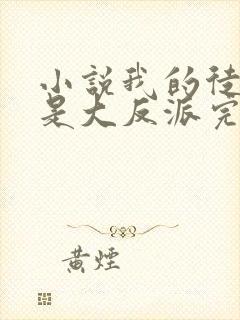 小說我的徒
是大反派完
黃煙